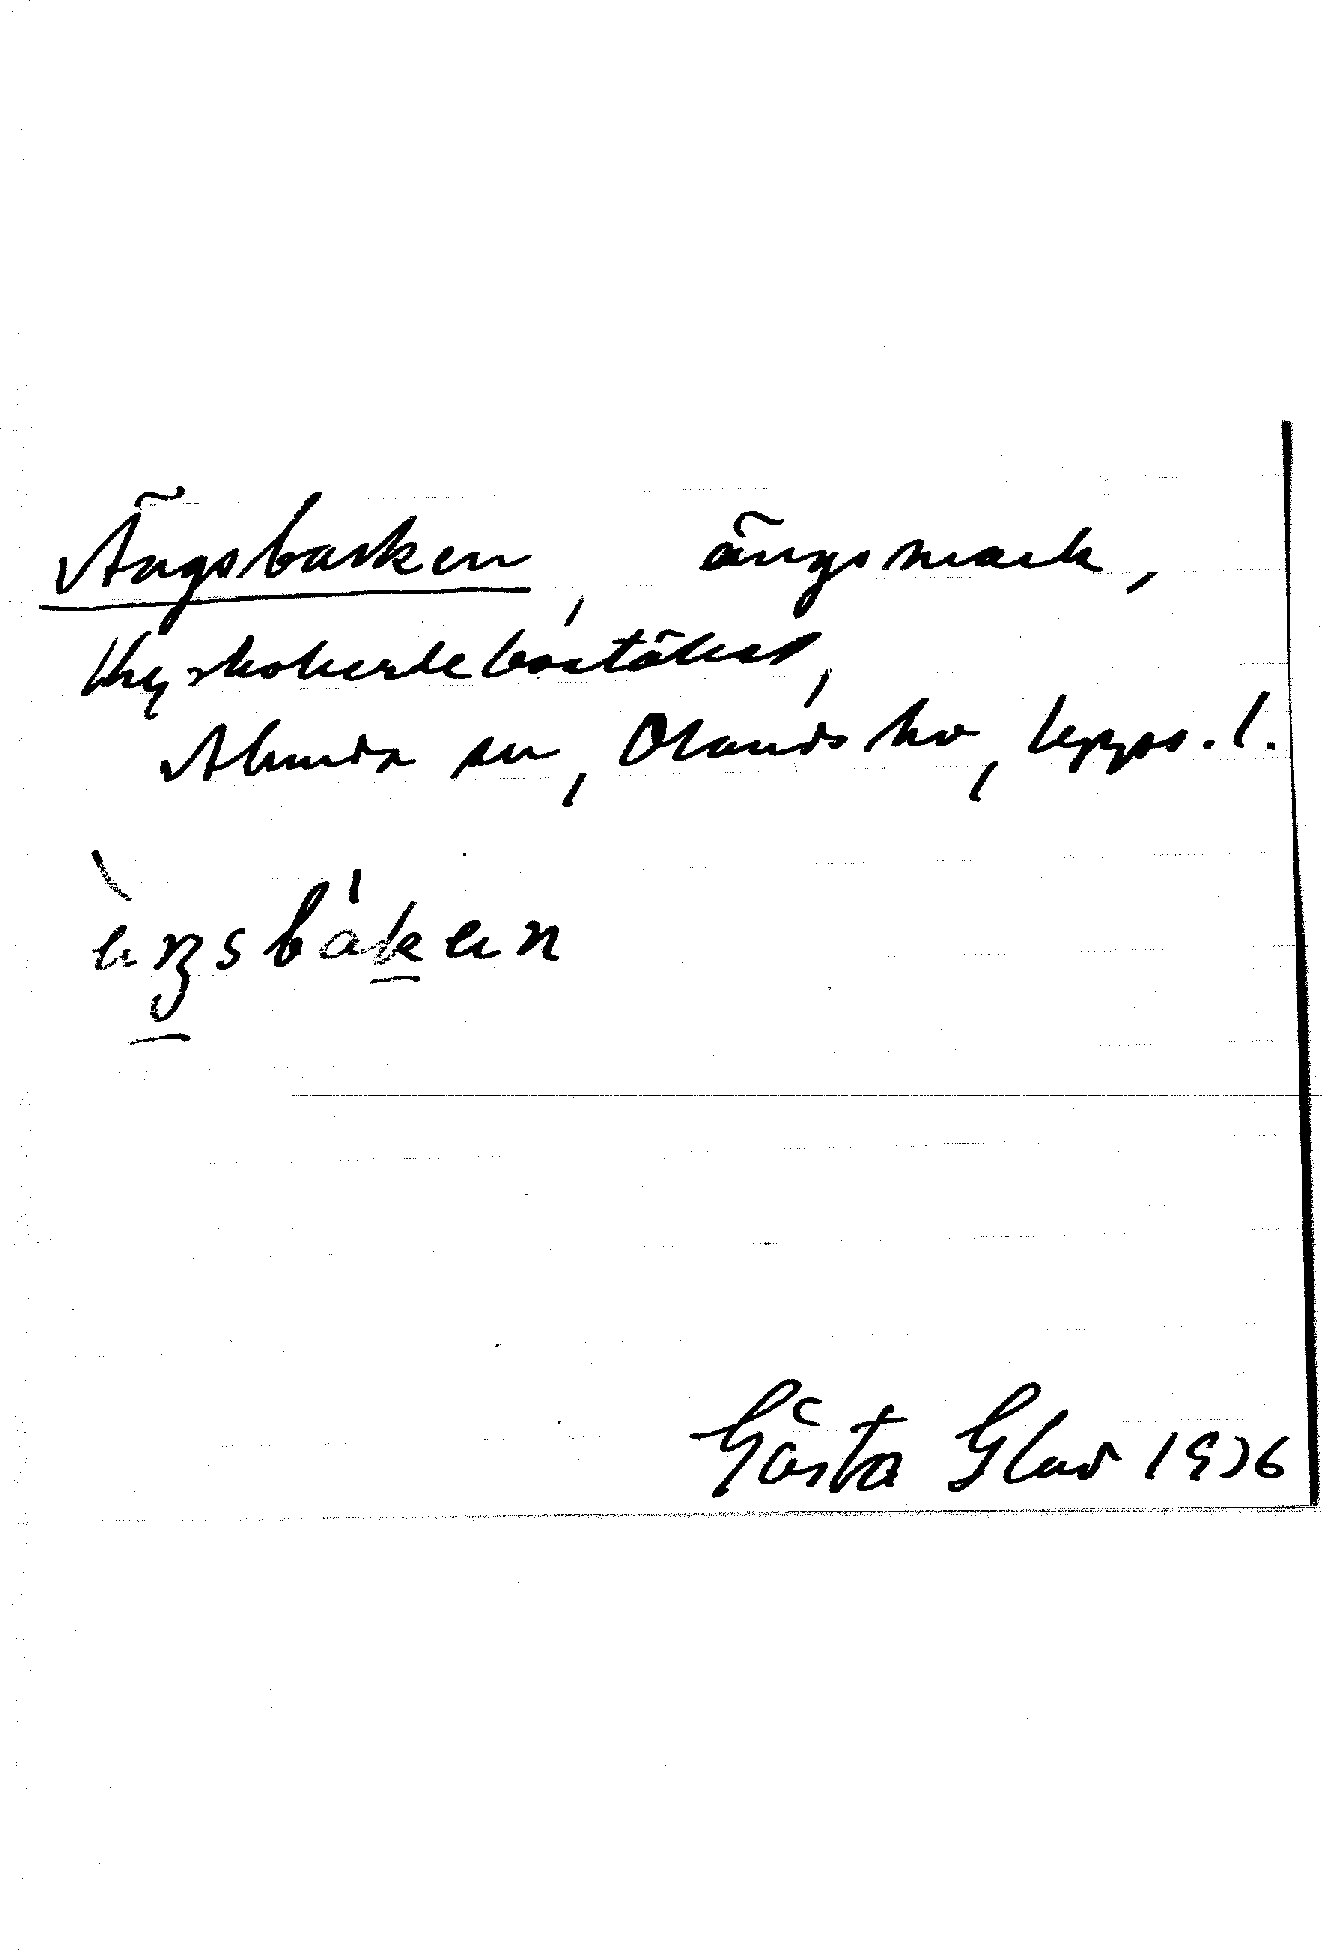 Ängsbacken, ängsmark,
Kyrkoherdebostället,
Alunda sn, Olands hd, Upps. l.
Gösta Glad 1936